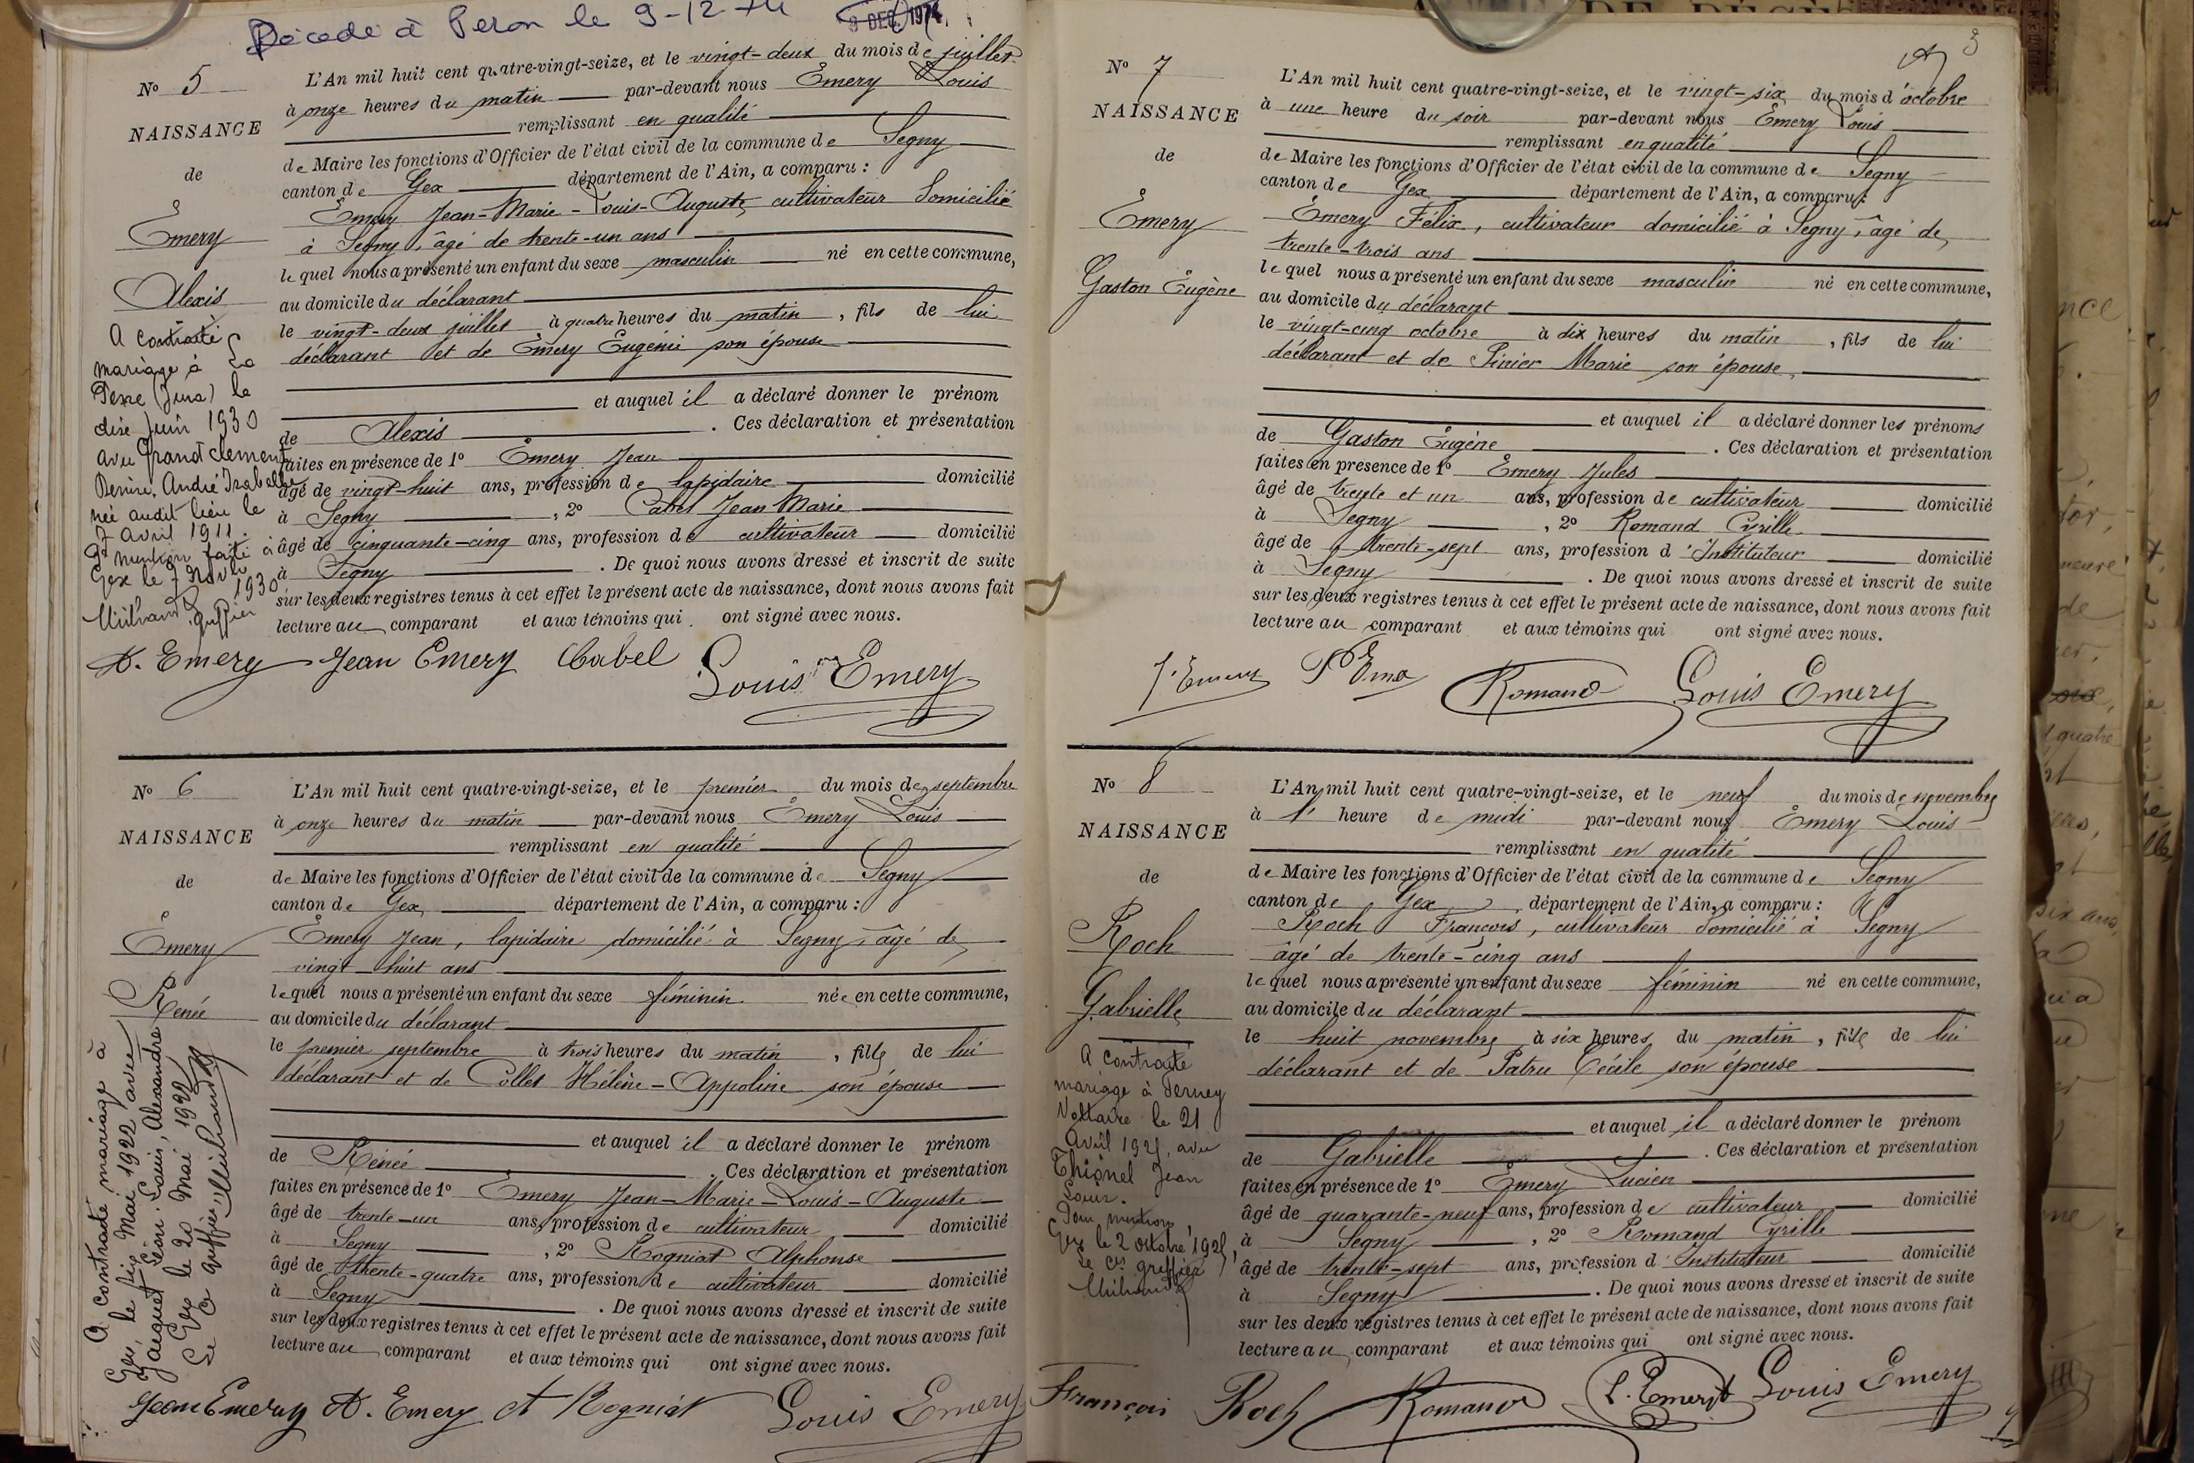 Décédé à Peron le 9-12-74
9 DEC. 1974
No 5
NAISSANCE
de
Emery
Alexis
A contracté
mariage à La
Pesse (Jura) le
dix Juin 1930
avec Grandclément
Denise, André Isabelle
née audit lieu le
7 avril 1911.
mention faite à
Gex le 7 Novbre
1930
greffier
L'An mil huit cent quatre-vingt-seize, et le vingt-deux du mois de juillet
à onze heures du matin par-devant nous Emery Louis
remplissant en qualité
de Maire les fonctions d'Officier de l'état civil de la commune de Segny
canton de Gex département de l'Ain, a comparu :
Emery Jean-Marie-Louis-Auguste, cultivateur domicilié
à Segny, âgé de trente-un ans
lequel nous a présenté un enfant du sexe masculin né en cette commune,
au domicile du déclarant
le vingt-deux juillet à quatre heures du matin, fils de lui
déclarant et de Emery Eugénie son épouse
et auquel il a déclaré donner le prénom
de Alexis. Ces déclaration et présentation
faites en présence de 1o Emery Jean
âgé de vingt-huit ans, profession de lapidaire domicilié
à Segny, 2o Cabel Jean Marie
âgé de cinquante-cinq ans, profession de cultivateur domicilié
à Segny. De quoi nous avons dressé et inscrit de suite
sur les deux registres tenus à cet effet le présent acte de naissance, dont nous avons fait
lecture au comparant et aux témoins qui ont signé avec nous.
A. Emery Jean Emery Cabel Louis Emery
No 6
NAISSANCE
de
Emery
Renée
A contracté mariage à
Gex, le six Mai 1922 avec
Jacquet Léon, Louis, Alexandre
Gex le 20 Mai 1922
Le Cs greffier,
L'An mil huit cent quatre-vingt-seize, et le premier du mois de septembre
à onze heures du matin par-devant nous Emery Louis
remplissant en qualité
de Maire les fonctions d'Officier de l'état civil de la commune de Segny
canton de Gex département de l'Ain, a comparu :
Emery Jean, lapidaire domicilié à Segny, âgé de
vingt-huit ans
lequel nous a présenté un enfant du sexe féminin née en cette commune,
au domicile du déclarant
le premier septembre à trois heures du matin, fille de lui
déclarant et de Collet Hélène-Appoline son épouse
et auquel il a déclaré donner le prénom
de Rénée. Ces déclaration et présentation
faites en présence de 1o Emery Jean-Marie-Louis-Auguste
âgé de trente-un ans, profession de cultivateur domicilié
à Segny, 2o Rogniat Alphonse
âgé de trente-quatre ans, profession de cultivateur domicilié
à Segny. De quoi nous avons dressé et inscrit de suite
sur les deux registres tenus à cet effet le présent acte de naissance, dont nous avons fait
lecture au comparant et aux témoins qui ont signé avec nous.
Jean Emery A. Emery A Rogniat Louis Emery
3
No 7
NAISSANCE
de
Emery
Gaston Eugène
L'An mil huit cent quatre-vingt-seize, et le vingt-six du mois d'octobre
à une heure du soir par-devant nous Emery Louis
remplissant en qualité
de Maire les fonctions d'Officier de l'état civil de la commune de Segny
canton de Gex département de l'Ain, a comparu :
Emery Félix, cultivateur domicilié à Segny, âgé de
trente-trois ans
lequel nous a présenté un enfant du sexe masculin né en cette commune,
au domicile du déclarant
le vingt-cinq octobre à dix heures du matin, fils de lui
déclarant et de Pinier Marie son épouse,
et auquel il a déclaré donner les prénoms
de Gaston Eugène. Ces déclaration et présentation
faites en présence de 1o Emery Jules
âgé de trente et un ans, profession de cultivateur domicilié
à Segny, 2o Romand Cyrille
âgé de trente-sept ans, profession d'Instituteur domicilié
à Segny. De quoi nous avons dressé et inscrit de suite
sur les deux registres tenus à cet effet le présent acte de naissance, dont nous avons fait
lecture au comparant et aux témoins qui ont signé avec nous.
J. Emery Romand Louis Emery
No 8
NAISSANCE
de
Roch
Gabrielle
A contracté
mariage à Ferney
Voltaire le 21
Avril 1921, avec
Thionel Jean
Louis.
Pour mention,
Gex le 2 octobre 1921,
Le Cs greffier
L'An mil huit cent quatre-vingt-seize, et le neuf du mois de novembre
à 1 heure de midi par-devant nous Emery Louis
remplissant en qualité
de Maire les fonctions d'Officier de l'état civil de la commune de Segny
canton de Gex, département de l'Ain, a comparu :
Roch François, cultivateur domicilié à Segny
âgé de trente-cinq ans
lequel nous a présenté un enfant du sexe féminin né en cette commune,
au domicile du déclarant
le huit novembre à six heures du matin, fille de lui
déclarant et de Patru Cécile son épouse
et auquel il a déclaré donner le prénom
de Gabrielle. Ces déclaration et présentation
faites en présence de 1o Emery Lucien
âgé de quarante-neuf ans, profession de cultivateur domicilié
à Segny, 2o Romand Cyrille
âgé de trente-sept ans, profession d'Instituteur domicilié
à Segny. De quoi nous avons dressé et inscrit de suite
sur les deux registres tenus à cet effet le présent acte de naissance, dont nous avons fait
lecture au comparant et aux témoins qui ont signé avec nous.
François Roch Romand L. Emery Louis Emery